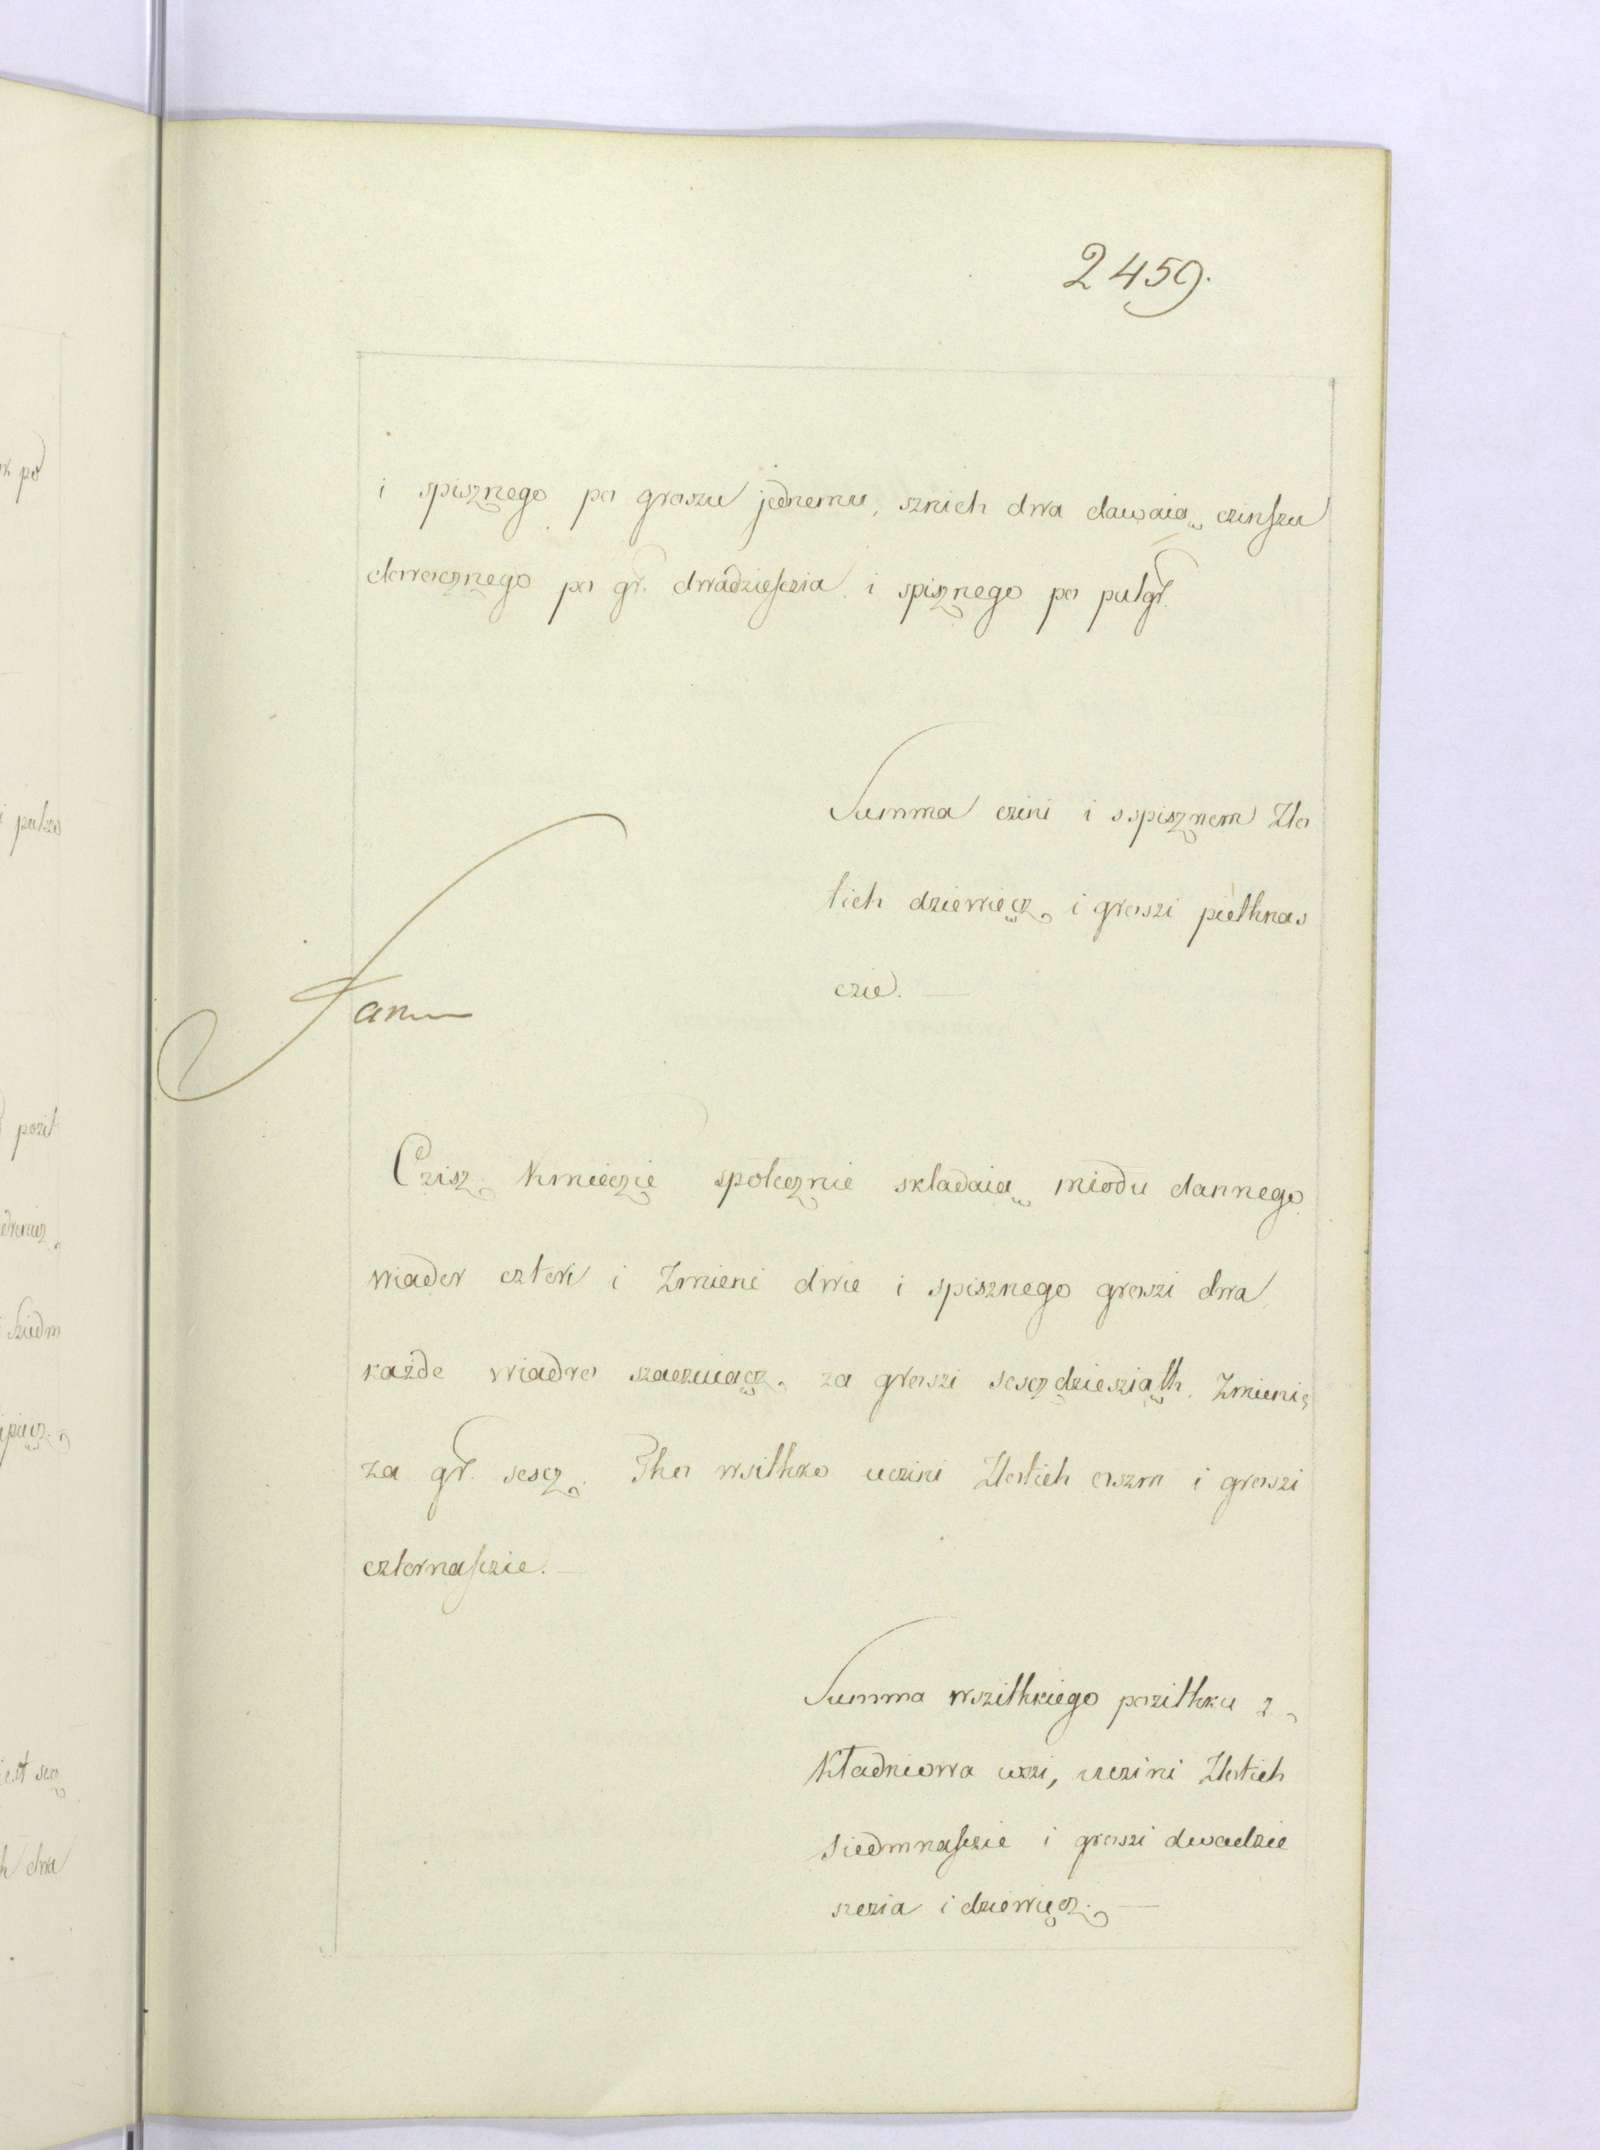 2459.
i spisznego po groszu jednemu, sznich dwa dawaią czinszu
dorocznego po gr. dwadzieścia i spisznego po pulgr.
Summa czini i sspisznem Zło
tich dziewięcz i groszi piethnas
czie.
Czisz Kmieczie społecznie składaią miodu dannego
wiader czteri i Zmieni dwie i spisznego groszi dwa
każde wiadro szaczuiącz za groszi sesczdziesziąth, Zmienię
za gr. sescz. Tho wsithko uczini Złotich oszm i groszi
czternaszcie.
Summa wszithkiego pozithku z
Kładniowa wszi, uczini Złotich
siedmnaszcie i groszi dwadzie
szczia i dziewięcz.